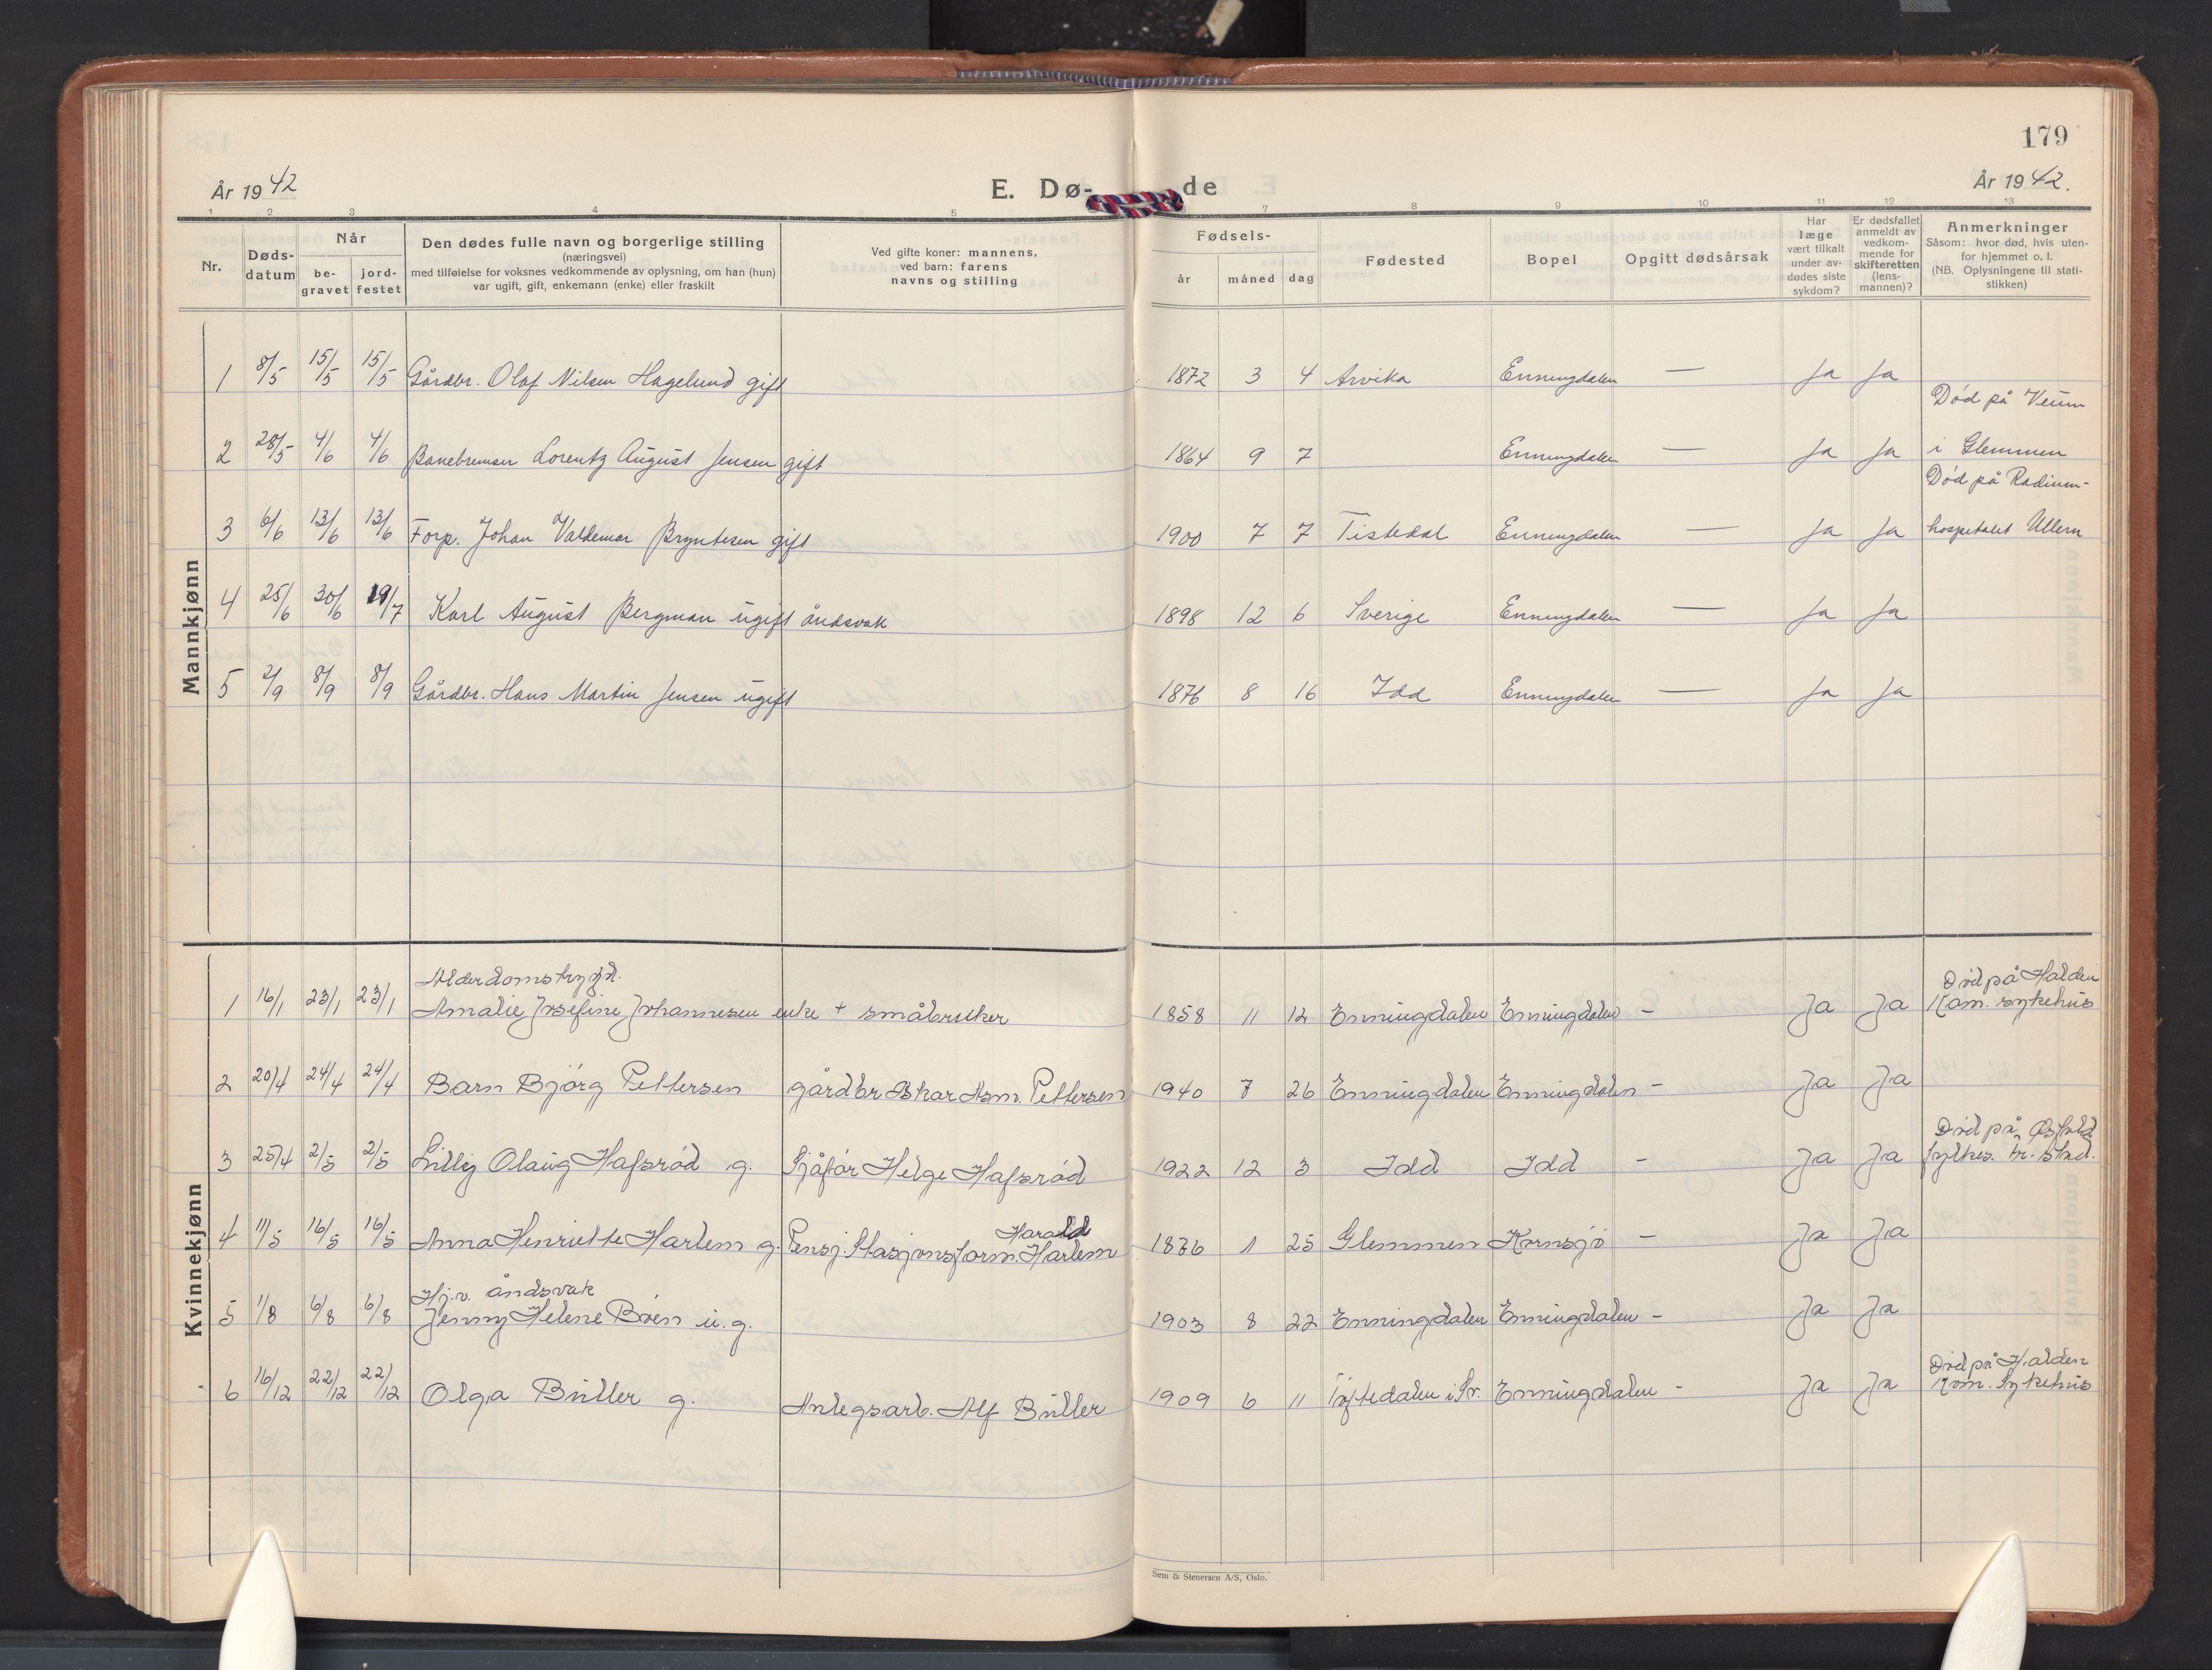 179
År 1942
E. Dø-
de
År 1942.
1 2 3 4 5 7 8 9 10 11 12 13
Nr.
Døds-
datum
Når
be-
gravet
jord-
festet
Den dødes fulle navn og borgerlige stilling
(næringsvei)
med tilføielse for voksnes vedkommende av oplysning, om han (hun)
var ugift, gift, enkemann (enke) eller fraskilt
Ved gifte koner: mannens,
ved barn: farens
navns og stilling
Fødsels-
år måned dag
Fødested
Bopel
Opgitt dødsårsak
Har
læge
vært tilkalt
under av-
dødes siste
sykdom?
Er dødsfallet
anmeldt av
vedkom-
mende for
skifteretten
(lens-
mannen)?
Anmerkninger
Såsom: hvor død, hvis uten-
for hjemmet o. l.
(NB. Oplysningene til stati-
stikken)
Mannkjønn
1 8/5 15/5 15/5 Gårdbr. Olaf Nilsen Hagelund gift 1872 3 4 Arvika Enningdalen — Ja Ja
Død på Veum
2 28/5 4/6 4/6 Banebremser Lorentz August Jensen gift 1864 9 7 Enningdalen — Ja Ja i Glemmen
Død på Radium-
3 6/6 13/6 13/6 Forp. Johan Valdemar Bryntesen gift 1900 7 7 Tistedal Enningdalen — Ja Ja hospitalet Ullern
4 25/6 30/6 19/7 Karl August Bergman ugift åndsvak 1898 12 6 Sverige Enningdalen — Ja Ja
5 2/9 8/9 8/9 Gårdbr. Hans Martin Jensen ugift 1876 8 16 Idd Enningdalen — Ja Ja
Kvinnekjønn
Alderdomstrygd.
Død på Halden
1 16/1 23/1 23/1 Amalie Josefine Johannesen enke + småbruker 1858 11 12 Enningdalen Enningdalen - Ja Ja Kom. sykehus
2 20/4 24/4 24/4 Barn Bjørg Pettersen gårdbr Oskar Asm. Pettersen 1940 7 26 Enningdalen Enningdalen - Ja Ja
Død på Østfold
3 25/4 2/5 2/5 Lilly Olaug Hafsrød g. Sjåfør Helge Hafsrød 1922 12 3 Idd Idd - Ja Ja fylkes. fr. stad.
Harald
4 11/5 16/5 16/5 Anna Henriette Harlem g. Pensj. Stasjonsform. Harlem 1876 1 25 Glemmen Kornsjø - Ja Ja
Hj.v. åndsvak
5 1/8 6/8 6/8 Jenny Helene Bøen u.g. 1903 8 22 Enningdalen Enningdalen - Ja Ja
Død på Halden
6 16/12 22/12 22/12 Olga Büller g. Anlegsarb. Alf Büller 1909 6 11 Töftedalen i Sv. Enningdalen - Ja Ja Kom. Sykehus
Sem & Stenersen A/S, Oslo.